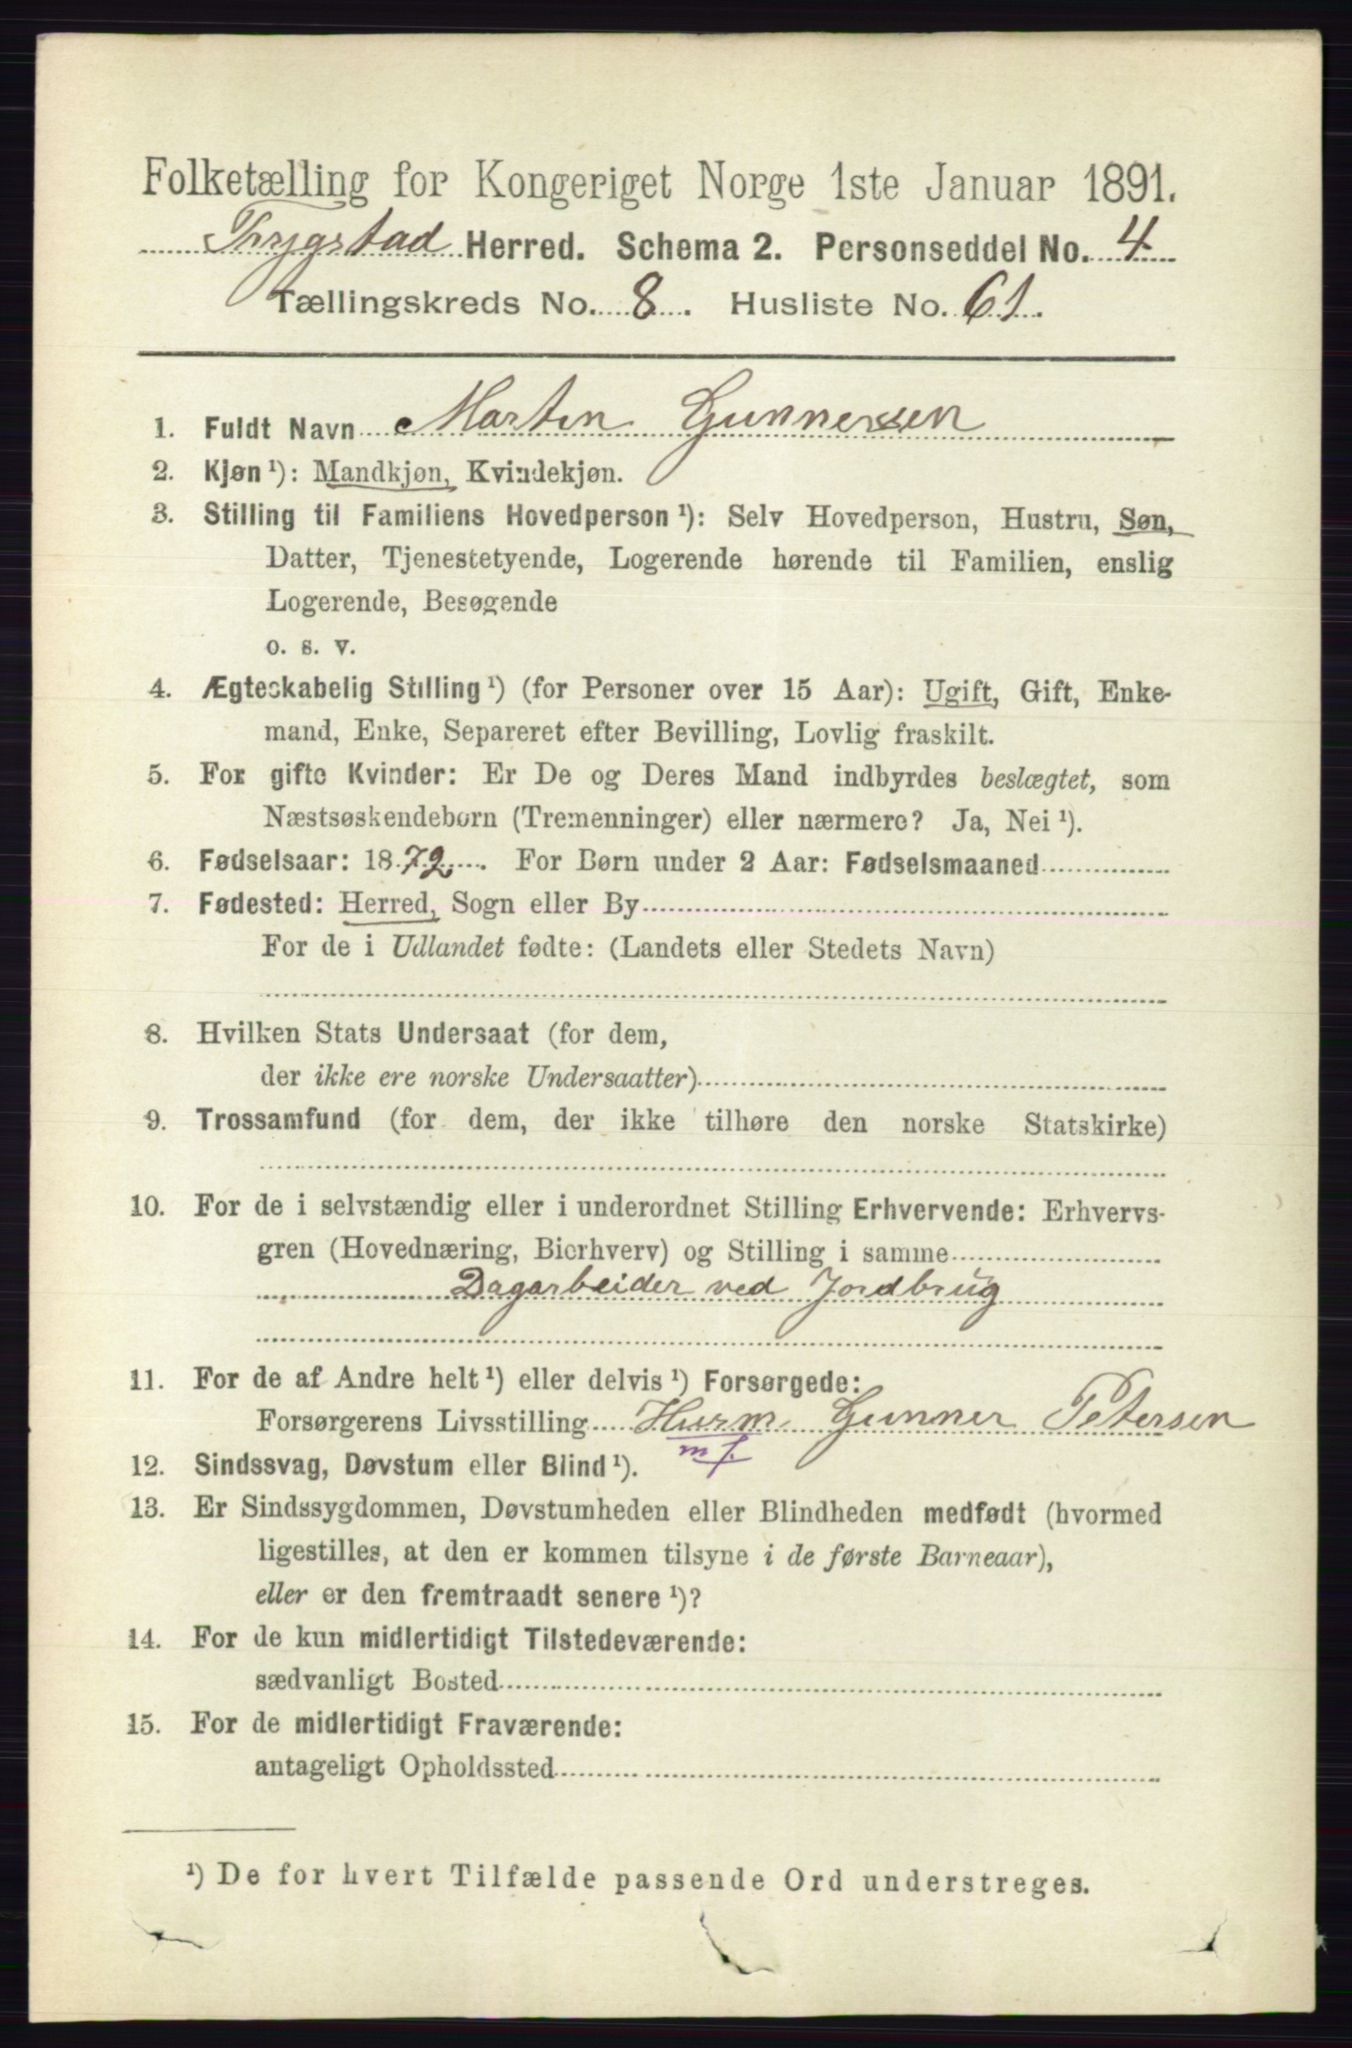 Folketælling for Kongeriget Norge 1ste Januar 1891.
Trygstad Herred. Schema 2. Personseddel No. 4
Tællingskreds No. 8. Husliste No. 61.
1. Fuldt Navn Martin Gunnersen
2. Kjøn ¹): Mandkjøn, Kvindekjøn.
3. Stilling til Familiens Hovedperson ¹): Selv Hovedperson, Hustru, Søn,
Datter, Tjenestetyende, Logerende hørende til Familien, enslig
Logerende, Besøgende
o. s. v.
4. Ægteskabelig Stilling ¹) (for Personer over 15 Aar): Ugift, Gift, Enke-
mand, Enke, Separeret efter Bevilling, Lovlig fraskilt.
5. For gifte Kvinder: Er De og Deres Mand indbyrdes beslægtet, som
Næstsøskendebørn (Tremenninger) eller nærmere? Ja, Nei ¹).
6. Fødselsaar: 1872. For Børn under 2 Aar: Fødselsmaaned
7. Fødested: Herred, Sogn eller By
For de i Udlandet fødte: (Landets eller Stedets Navn)
8. Hvilken Stats Undersaat (for dem,
der ikke ere norske Undersaatter)
9. Trossamfund (for dem, der ikke tilhøre den norske Statskirke)
10. For de i selvstændig eller i underordnet Stilling Erhvervende: Erhvervs-
gren (Hovednæring, Bierhverv) og Stilling i samme
Dagarbeider ved Jordbrug
11. For de af Andre helt ¹) eller delvis ¹) Forsørgede:
Forsørgerens Livsstilling Husm. Gunner Petersen
m/.
12. Sindssvag, Døvstum eller Blind ¹).
13. Er Sindssygdommen, Døvstumheden eller Blindheden medfødt (hvormed
ligestilles, at den er kommen tilsyne i de første Barneaar),
eller er den fremtraadt senere ¹)?
14. For de kun midlertidigt Tilstedeværende:
sædvanligt Bosted
15. For de midlertidigt Fraværende:
antageligt Opholdssted
¹) De for hvert Tilfælde passende Ord understreges.